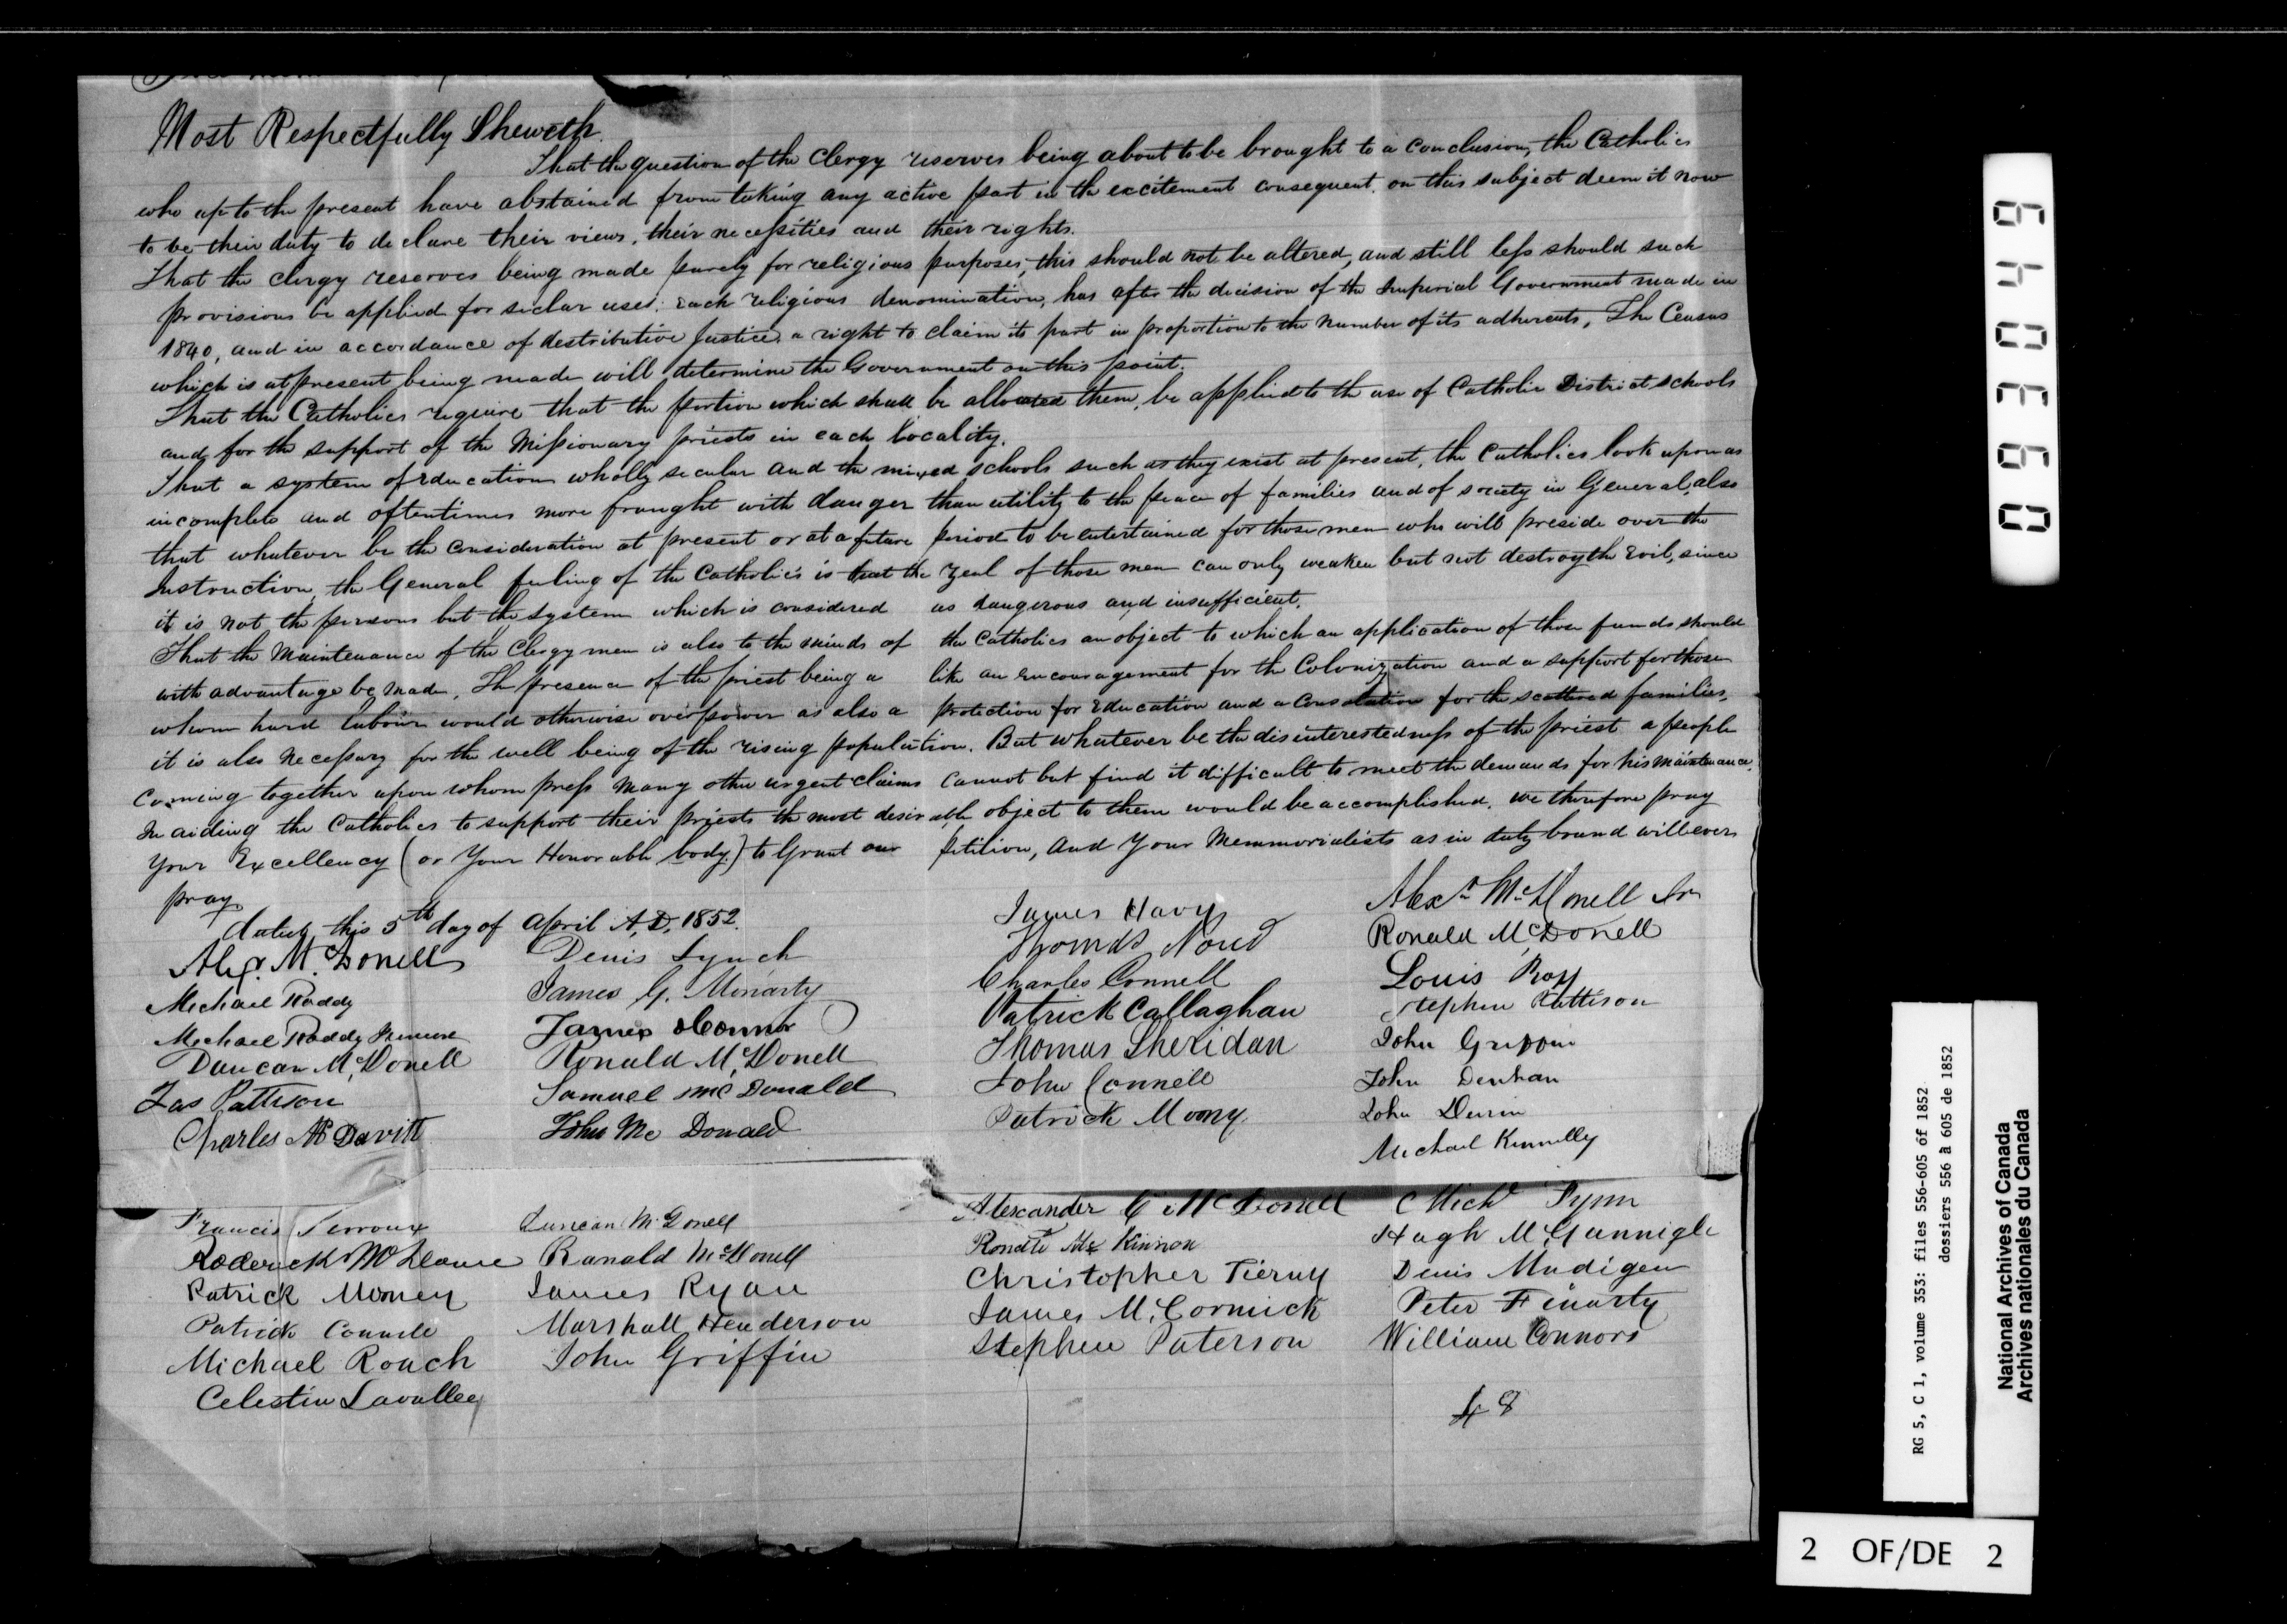 Most Respectfully Sheweth.
That the question of the Clergy reserves being about to be brought to a conclusion, the Catholics
who up to the present have abstained from taking any active part in the excitement consequent, on this subject deem it now
to be their duty to declare their views, their necessities and their rights.
That the clergy reserves being made purely for religious purposes, this should not be altered, and still less should such
provisions be applied for seclar uses: each religious denomination, has after the decision of the Imperial Government made in
1840, and in accordance of destributive Justice, a right to claim its part in proportion to the number of its adherents, The Census
which is at present being made will determine the Government on this point.
That the Catholics require that the portion which shall be allocated them, be applied to the use of Catholic District schools
and for the support of the Missionary priests in each locality.
That a system of Education wholly secular and the mixed schools such as they exist at present, the Catholics look upon as
incomplete and oftentimes more fraught with danger than utility to the peace of families and of society in General, also
that whatever be the consideration at present or at a future period to be entertained for those men who will preside over the
Instruction, the General feeling of the Catholics is that the zeal of those men can only weaken but not destroy the Evil, since
it is not the persons but the system which is considered as dangerous and insufficient.
That the Maintenance of the Clergymen is also to the minds of the Catholics an object to which an application of those funds should
with advantage be made, The presence of the priest being a like an encouragement for the Colonization and a support for those
whom hard labour would otherwise overpower as also a protection for Education and a Consolation for the scattered families,
it is also necessary for the well being of the rising population. But whatever be the disinterestedness of the priest a people
Coming together upon whom press many other urgent claims cannot but find it difficult to meet the demands for his maintenance,
In aiding the Catholics to support their priests the most desirable object to them would be accomplished. we therefore pray
Your Excellency (or Your Honorable body) to Grant our petition, and your Memmorialists as in duty bound will ever
pray
dated this 5th day of April A,D, 1852.
Alex. McDonell
Michael Roddy
Michael Roddy
Duncan McDonell
Jas Pattison
Charles McDavitt
Denis Lynch
James G. Moriarty
James OConnor
Ronald McDonell
Samuel McDonald
John Mc Donald
James Havy
Thomas
Charles Connell
Patrick Callaghan
Thomas Sheridan
John Connell
Patrick Moony
Alexr McDonell Sr
Ronald McDonell
Louis Roy
Stephen Pattison
John Griffin
John Denhan
John
Michael Kennelly
Francis
Roderick
Patrick Mooney
Patrick
Michael Roach
Celestin Lavallee
Duncan McDonell
Ranald McDonell
James Ryan
Marshall Henderson
John Griffin
Alexander C McDonell
Mc Kinnon
Christopher Tierny
James McCormick
Stephen Paterson
Michl Flynn
Hugh McGunnigle
Denis Madigen
Peter Finarty
William Connors
48
036049
RG 5, C 1, volume 353: files 556-605 of 1852
dossiers 556 à 605 de 1852
National Archives of Canada
Archives nationales du Canada
2 OF/DE 2